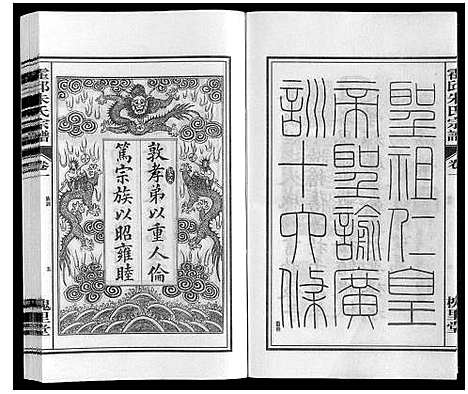 霍邱朱氏宗譜
卷一
聖祖仁皇
帝聖諭廣
訓十六條
敦孝弟以重人倫
篤宗族以昭雍睦
霍邱朱氏宗譜
卷一
五
槐里堂